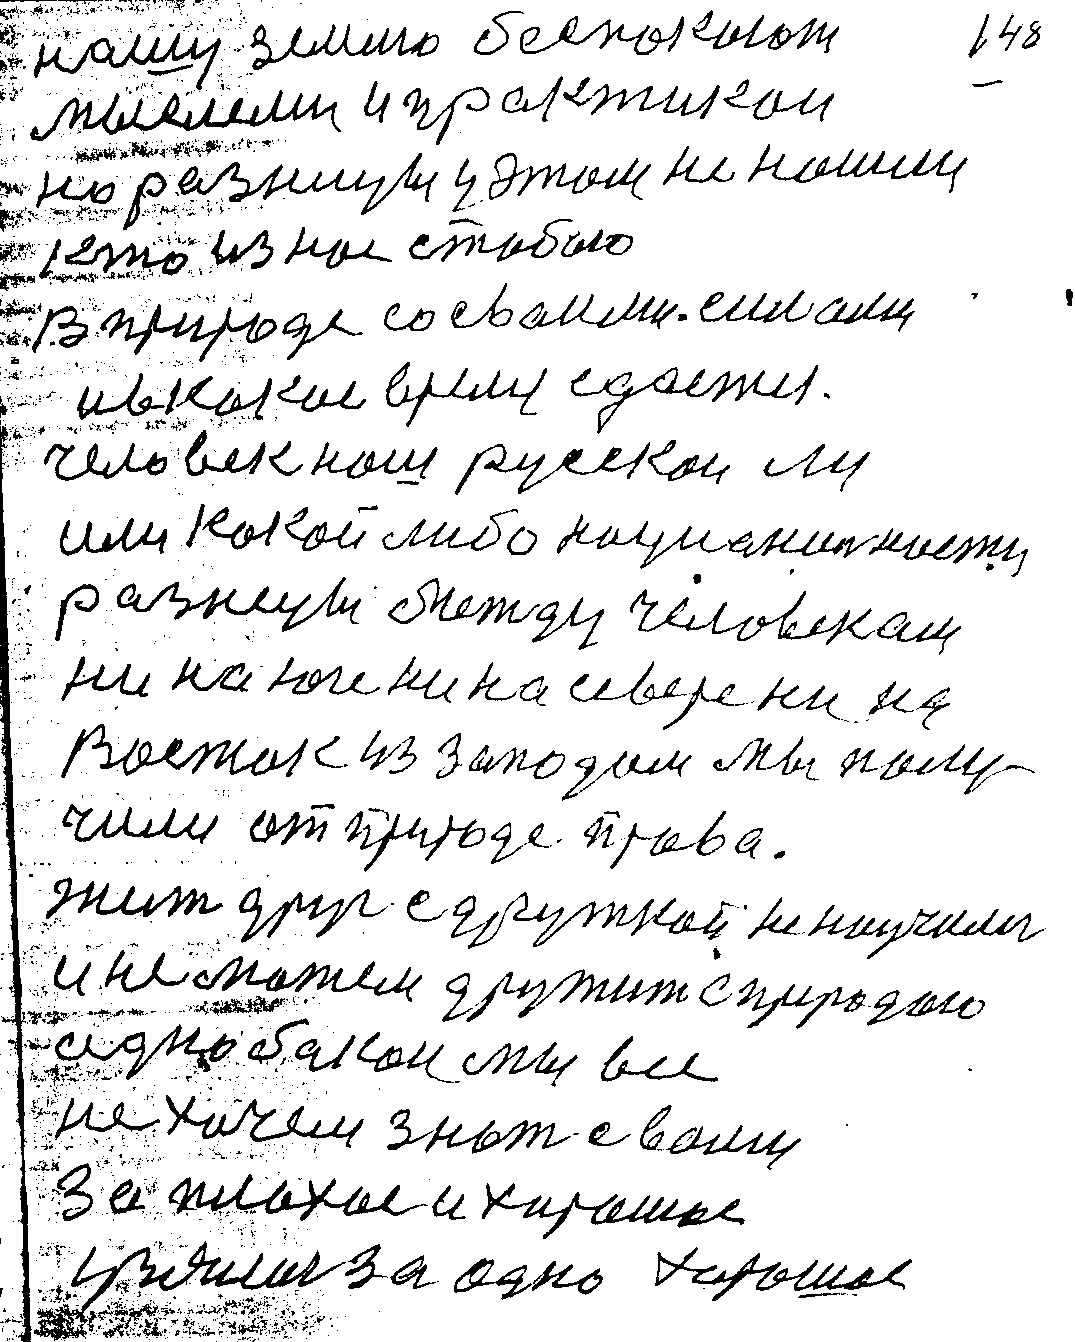 нашу землю беспокоют 148
мыслеми и практикой
но разницы у этом не нашли
кто из нас стобою
В природе со сваими. силами
ив какое время сдается.
человек наш русской ли
или какой либо национальности
разницы между человекам
ни на юге ни на севере ни на
Восток из заподом мы полу-
чили от природе права.
жит друг с дружкой не научились
и не можем дружит с природаю
однобакои мы все
не хочем знат с вами
За плохое и хорошое
взялись за одно хорошое